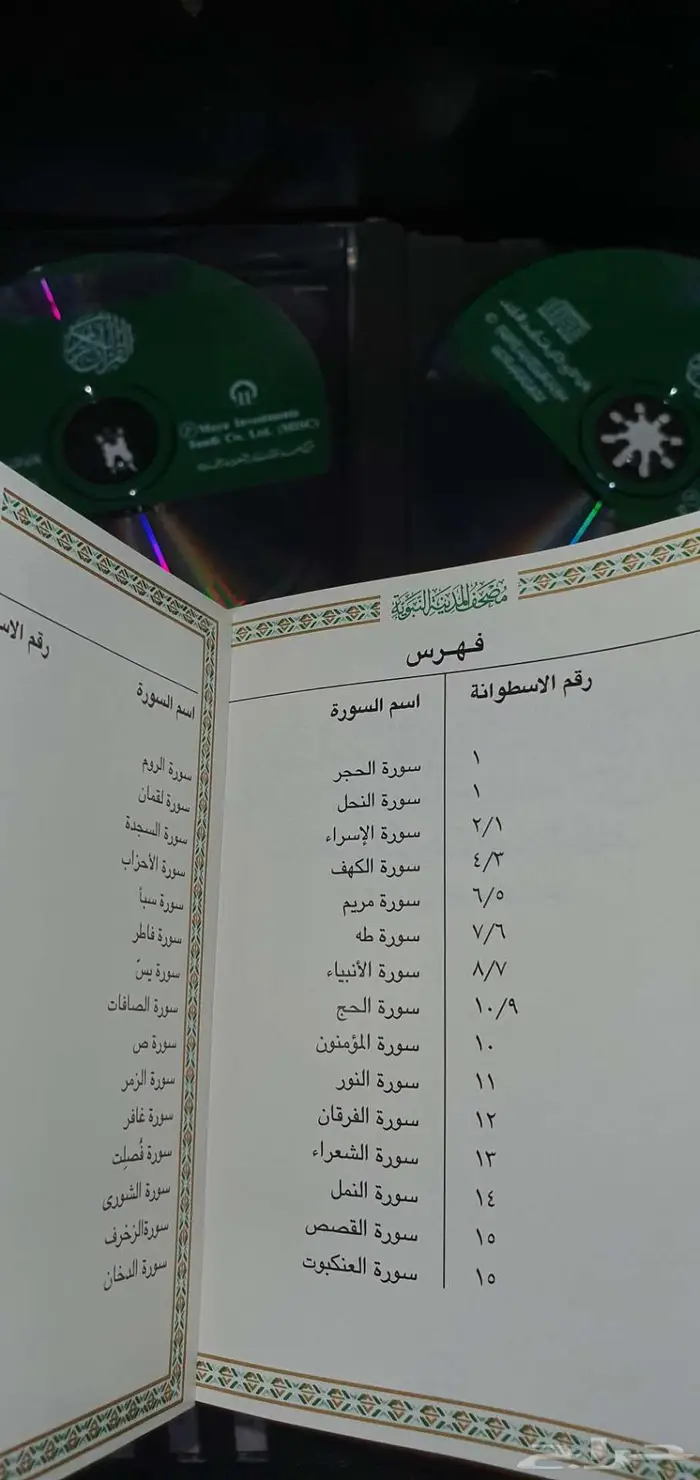 القرآن الكريم
Maya Investments
Saudi Co. Ltd. (MISC)
مصحف المدينة النبوية
فهرس
رقم الاسطوانة اسم السورة
١ سورة الحجر
١ سورة النحل
٢/١ سورة الإسراء
٤/٣ سورة الكهف
٦/٥ سورة مريم
٧/٦ سورة طه
٨/٧ سورة الأنبياء
١٠/٩ سورة الحج
١٠ سورة المؤمنون
١١ سورة النور
١٢ سورة الفرقان
١٣ سورة الشعراء
١٤ سورة النمل
١٥ سورة القصص
١٥ سورة العنكبوت
رقم الاس
اسم السورة
سورة الروم
سورة لقمان
سورة السجدة
سورة الأحزاب
سورة سبأ
سورة فاطر
سورة يسّ
سورة الصافات
سورة ص
سورة الزمر
سورة غافر
سورة فُصلِت
سورة الشورى
سورة الزخرف
سورة الدخان
حراج